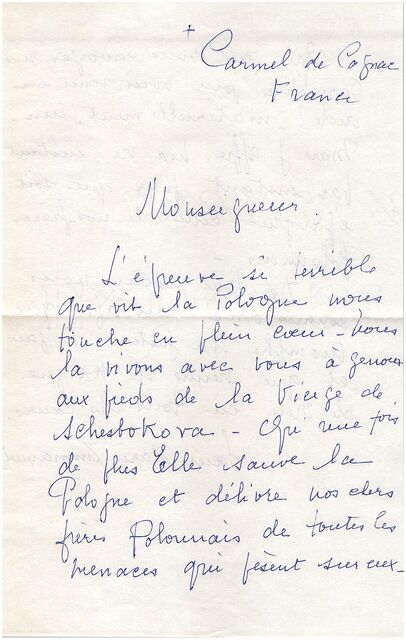 +
Carmel de Cognac
France
Monseigneur.
L'épreuve si terrible
que vit la Pologne nous
touche en plein cœur - Nous
la vivons avec vous à genoux
aux pieds de la Vierge de
Schestokova - Qu'une fois
de plus Elle sauve la
Pologne et délivre nos chers
frères Polonnais de toutes les
menaces qui pèsent sur eux -